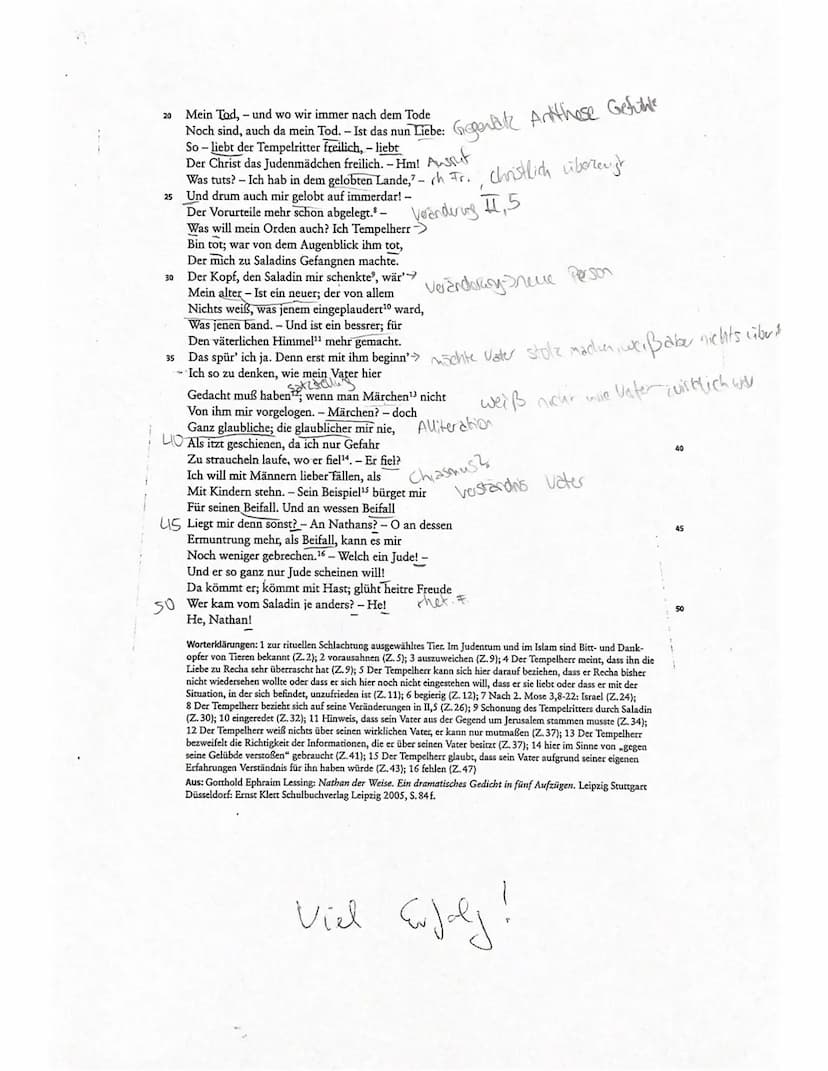 20 Mein Tod, – und wo wir immer nach dem Tode
Noch sind, auch da mein Tod. – Ist das nun Liebe: Gegensatz Antithese Gefühle
So – liebt der Tempelritter freilich, – liebt
Der Christ das Judenmädchen freilich. – Hm! Ausruf
Was tuts? – Ich hab in dem gelobten Lande,⁷ – rh Fr. , christlich überzeugt
25 Und drum auch mir gelobt auf immerdar! –
Der Vorurteile mehr schon abgelegt.⁸ – Veränderung II,5
Was will mein Orden auch? Ich Tempelherr →
Bin tot; war von dem Augenblick ihm tot,
Der mich zu Saladins Gefangnen machte.
30 Der Kopf, den Saladin mir schenkte⁹, wär' →
Mein alter – Ist ein neuer; der von allem Veränderung → neue Person
Nichts weiß, was jenem eingeplaudert¹⁰ ward,
Was jenen band. – Und ist ein bessrer; für
Den väterlichen Himmel¹¹ mehr gemacht.
35 Das spür' ich ja. Denn erst mit ihm beginn' → möchte Vater stolz machen, weiß aber nichts über
Ich so zu denken, wie mein Vater hier
Gedacht muß haben¹²; wenn man Märchen¹³ nicht
Von ihm mir vorgelogen. – Märchen? – doch weiß nicht wie Vater wirklich war
Ganz glaubliche; die glaublicher mir nie, Alliteration
40 Als itzt geschienen, da ich nur Gefahr 40
Zu straucheln laufe, wo er fiel¹⁴. – Er fiel?
Ich will mit Männern lieber fallen, als Chiasmus?
Mit Kindern stehn. – Sein Beispiel¹⁵ bürget mir Verständnis Vater
Für seinen Beifall. Und an wessen Beifall
45 Liegt mir denn sonst? – An Nathans? – O an dessen 45
Ermuntrung mehr, als Beifall, kann es mir
Noch weniger gebrechen.¹⁶ – Welch ein Jude! –
Und er so ganz nur Jude scheinen will!
Da kömmt er; kömmt mit Hast; glüht heitre Freude
50 Wer kam vom Saladin je anders? – He! rhet. F. 50
He, Nathan!
Worterklärungen: 1 zur rituellen Schlachtung ausgewähltes Tier. Im Judentum und im Islam sind Bitt- und Dank-
opfer von Tieren bekannt (Z. 2); 2 vorausahnen (Z. 5); 3 auszuweichen (Z. 9); 4 Der Tempelherr meint, dass ihn die
Liebe zu Recha sehr überrascht hat (Z. 9); 5 Der Tempelherr kann sich hier darauf beziehen, dass er Recha bisher
nicht wiedersehen wollte oder dass er sich hier noch nicht eingestehen will, dass er sie liebt oder dass er mit der
Situation, in der sich befindet, unzufrieden ist (Z. 11); 6 begierig (Z. 12); 7 Nach 2. Mose 3,8-22: Israel (Z. 24);
8 Der Tempelherr bezieht sich auf seine Veränderungen in II,5 (Z. 26); 9 Schonung des Tempelritters durch Saladin
(Z. 30); 10 eingeredet (Z. 32); 11 Hinweis, dass sein Vater aus der Gegend um Jerusalem stammen musste (Z. 34);
12 Der Tempelherr weiß nichts über seinen wirklichen Vater, er kann nur mutmaßen (Z. 37); 13 Der Tempelherr
bezweifelt die Richtigkeit der Informationen, die er über seinen Vater besitzt (Z. 37); 14 hier im Sinne von „gegen
seine Gelübde verstoßen“ gebraucht (Z. 41); 15 Der Tempelherr glaubt, dass sein Vater aufgrund seiner eigenen
Erfahrungen Verständnis für ihn haben würde (Z. 43); 16 fehlen (Z. 47)
Aus: Gotthold Ephraim Lessing: Nathan der Weise. Ein dramatisches Gedicht in fünf Aufzügen. Leipzig Stuttgart
Düsseldorf: Ernst Klett Schulbuchverlag Leipzig 2005, S. 84 f.
Viel Erfolg!